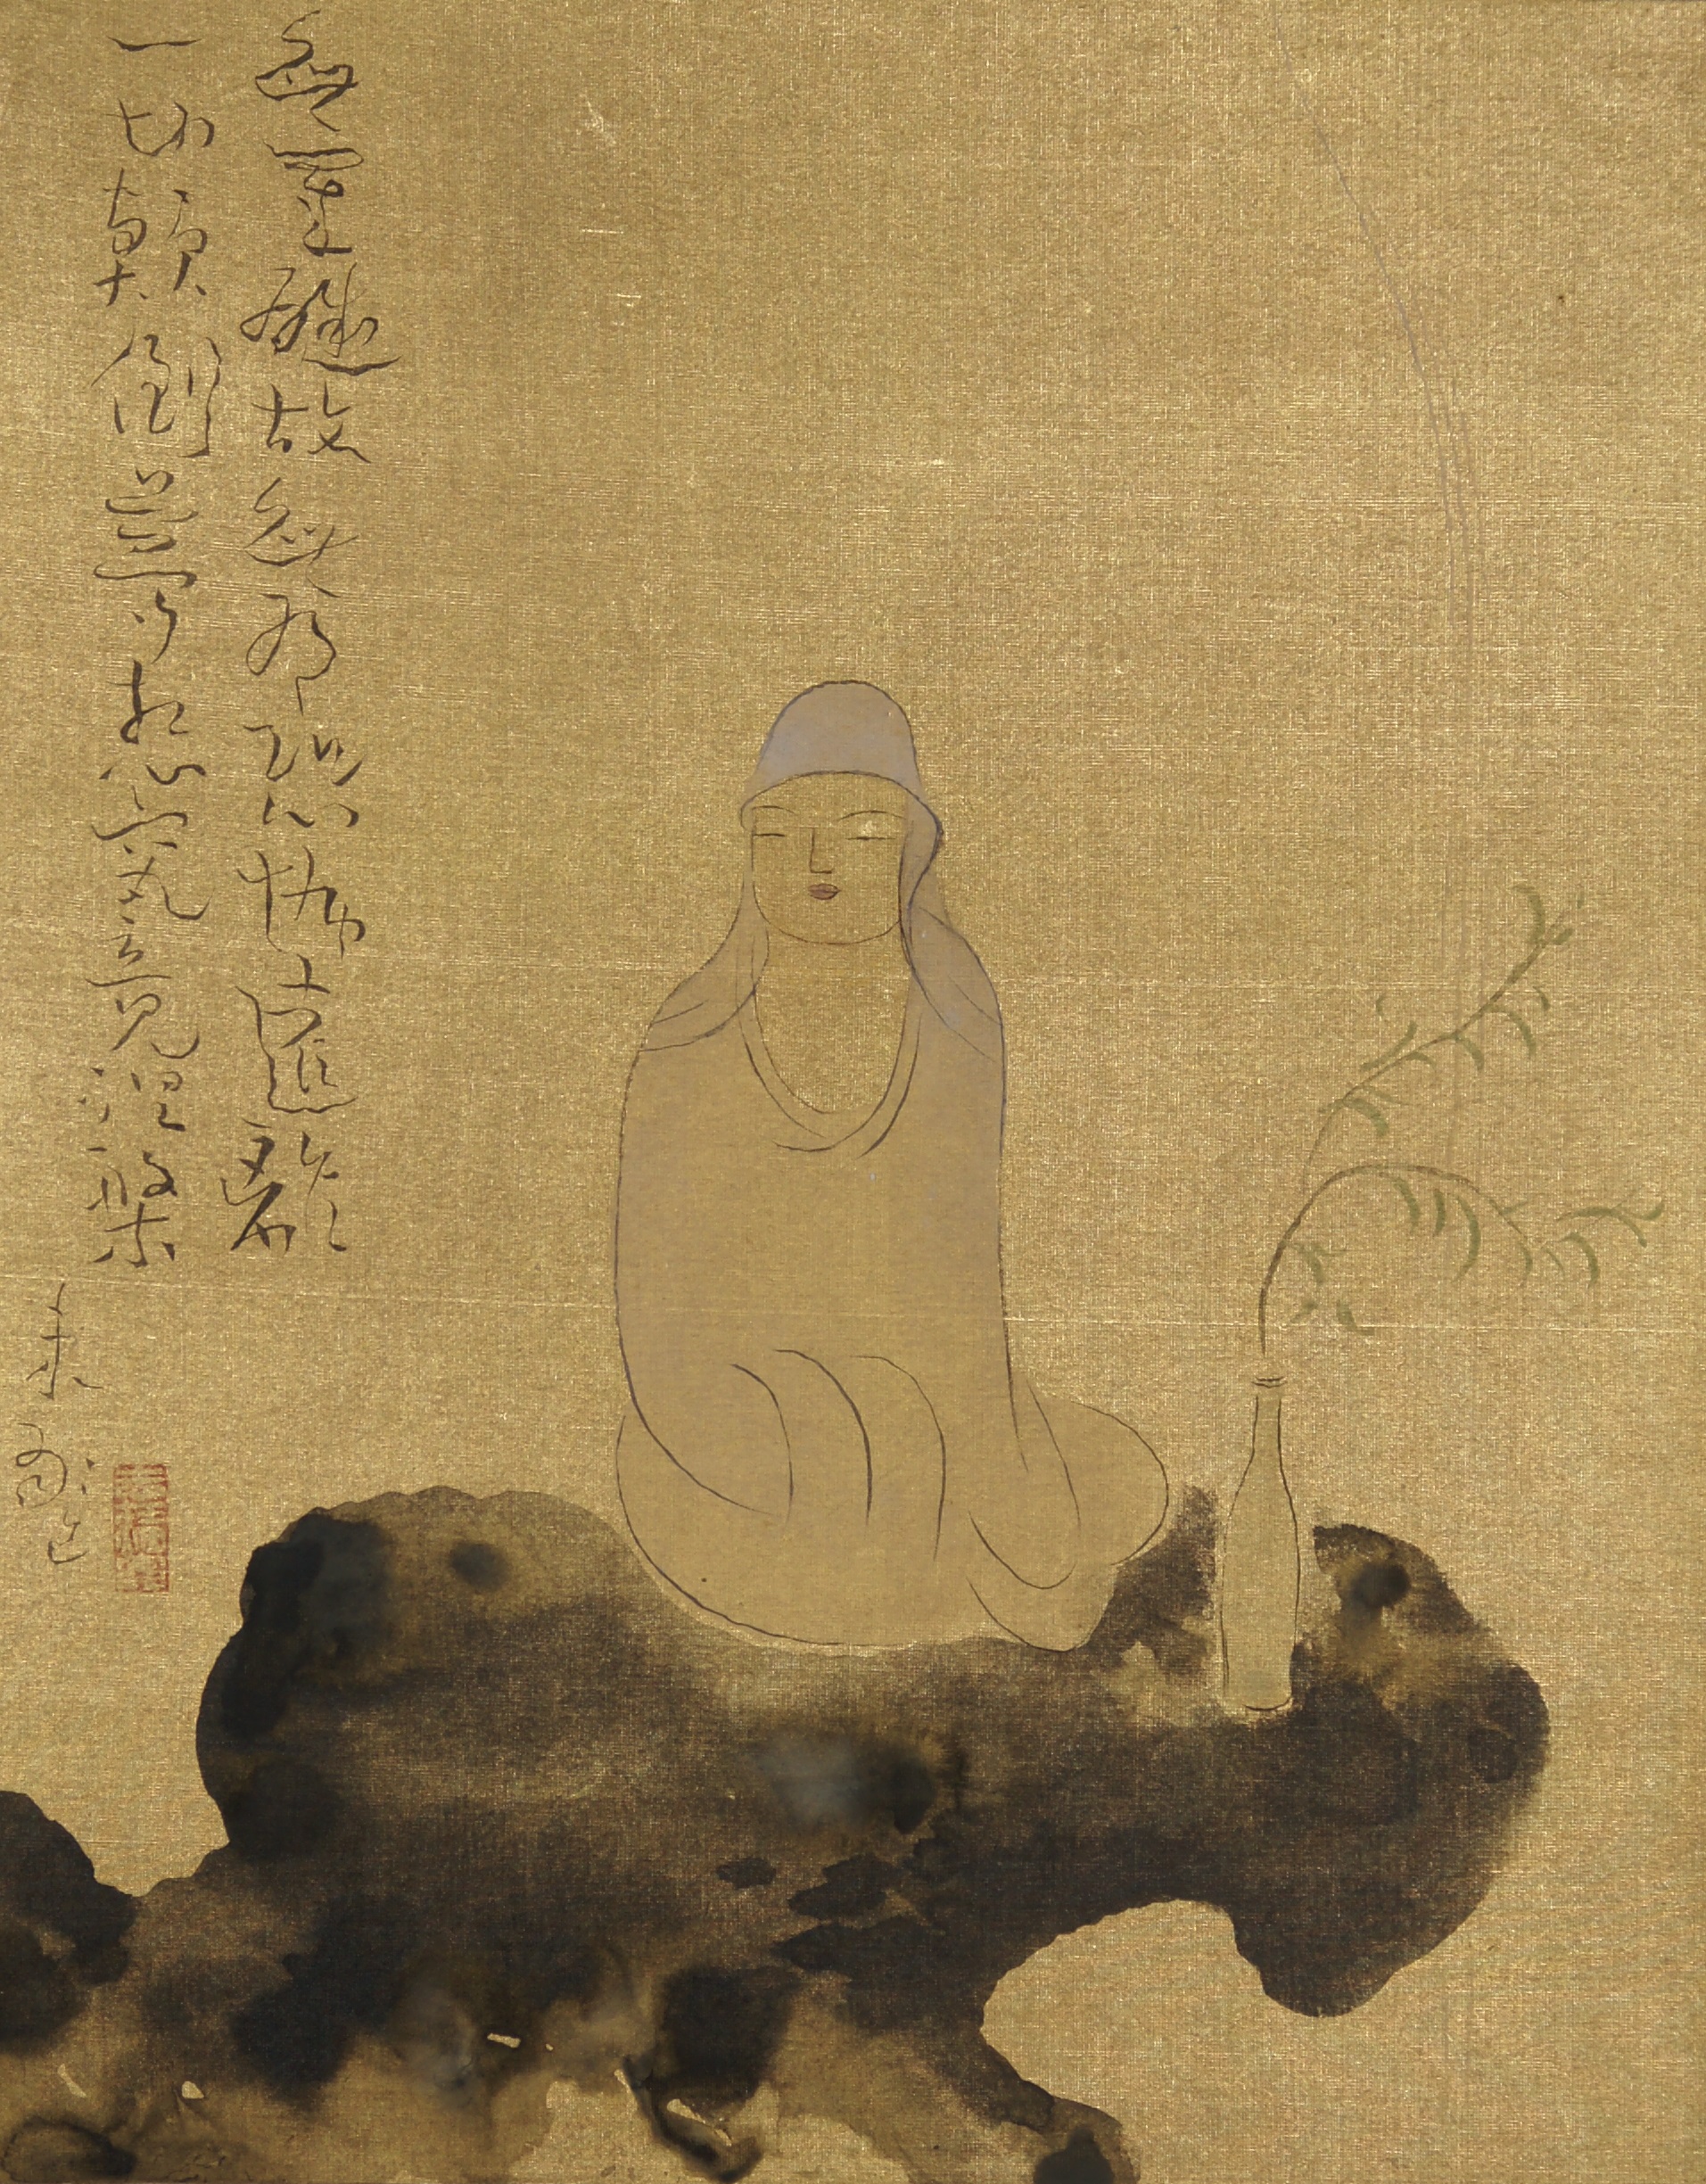 無罣礙故無有恐怖遠離
一切顛倒夢想究竟涅槃